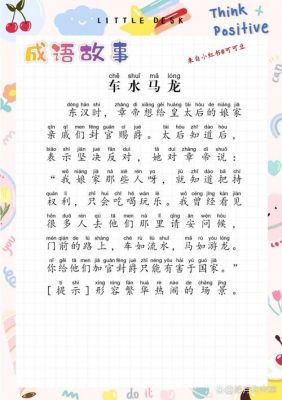 LITTLE DESK
Think +
Positive
成语故事
来自小红书@可可豆
chē shuǐ mǎ lóng
车水马龙
dōng hàn shí zhāng dì xiǎng gěi huáng tài hòu de niáng jiā
东汉时，章帝想给皇太后的娘家
qīn qi men fēng guān cì jué tài hòu zhī dào hòu
亲戚们封官赐爵。太后知道后，
biǎo shì jiān jué fǎn duì tā duì zhāng dì shuō
表示坚决反对，她对章帝说：
wǒ niáng jiā nà xiē rén ya jiù zhī dào bǎ chí
“我娘家那些人呀，就知道把持
quán lì zhǐ huì chī hē wán lè wǒ céng jīng kàn jiàn
权利，只会吃喝玩乐。我曾经看见
hěn duō rén qù tā men nà lǐ qǐng ān wèn hòu
很多人去他们那里请安问候，
mén qián de lù shàng chē rú liú shuǐ mǎ rú yóu lóng
门前的路上，车如流水，马如游龙。
nǐ gěi tā men jiā guān fēng jué zhǐ néng yǒu hài yú guó jiā
你给他们加官封爵只能有害于国家。”
tí shì xíng róng fán huá rè nao de chǎng jǐng
[提示]形容繁华热闹的场景。
do it